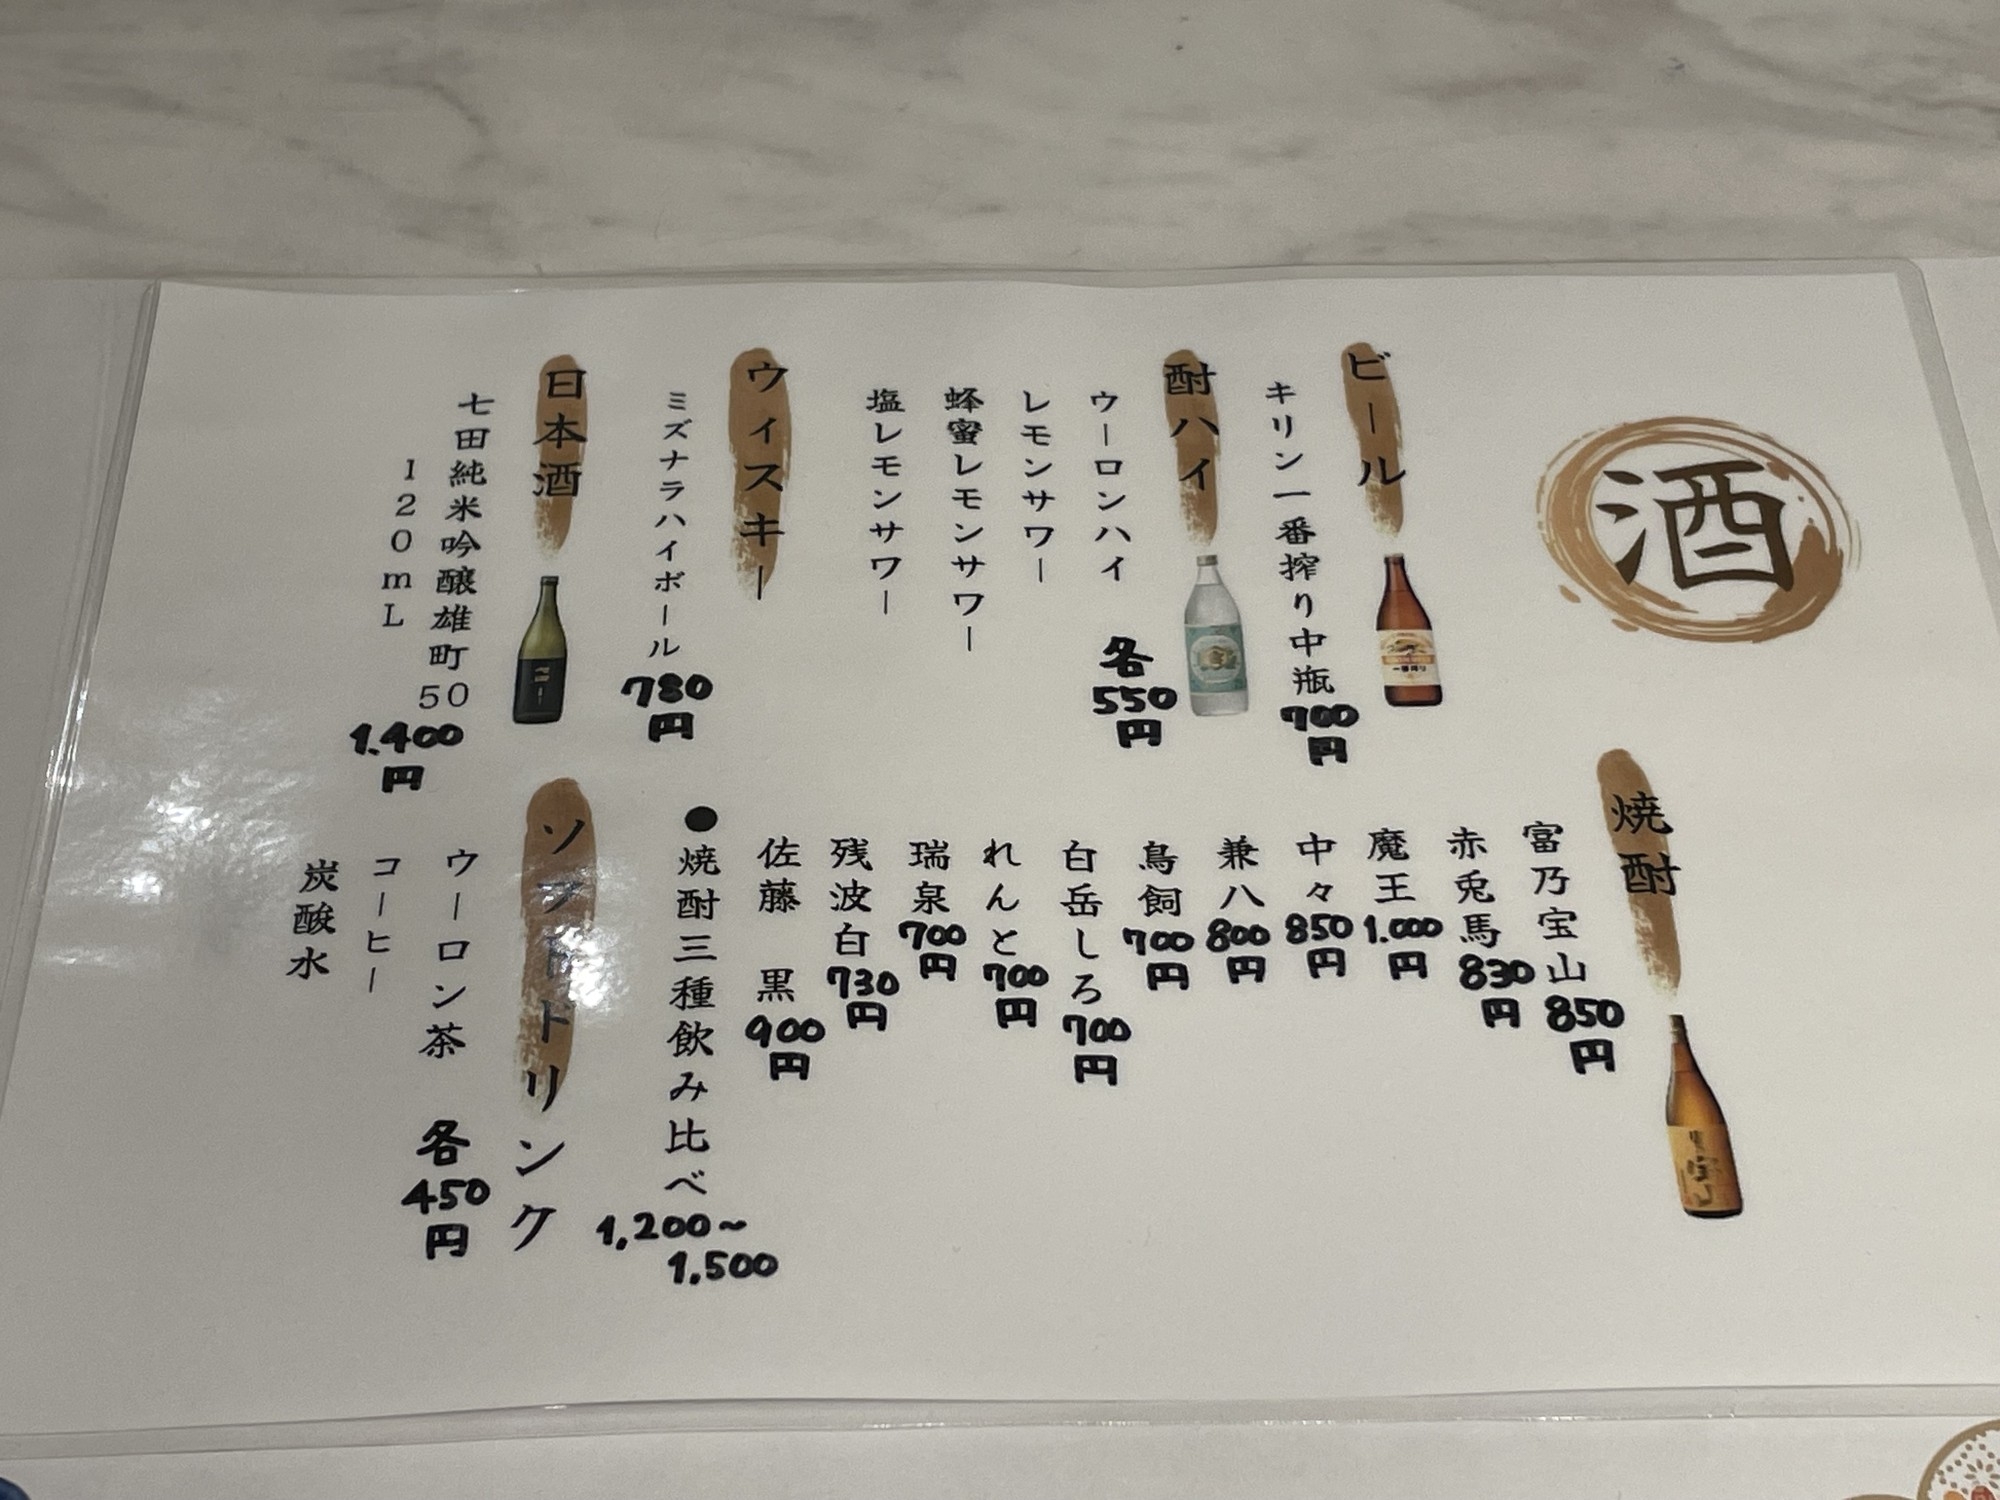 酒
ビール
キリン一番搾り中瓶
700
円
酎ハイ
ウーロンハイ
レモンサワー
蜂蜜レモンサワー
塩レモンサワー
各
550
円
ウィスキー
ミズナラハイボール
780
円
日本酒
七田純米吟醸雄町50
120mL
1.400
円
焼酎
富乃宝山
850
円
赤兎馬
830
円
魔王
1.000
円
中々
850
円
兼八
800
円
鳥飼
700
円
白岳しろ
700
円
れんと
700
円
瑞泉
700
円
残波白
730
円
佐藤 黒
900
円
●焼酎三種飲み比べ
1,200~
1,500
ソフトドリンク
ウーロン茶
コーヒー
炭酸水
各
450
円